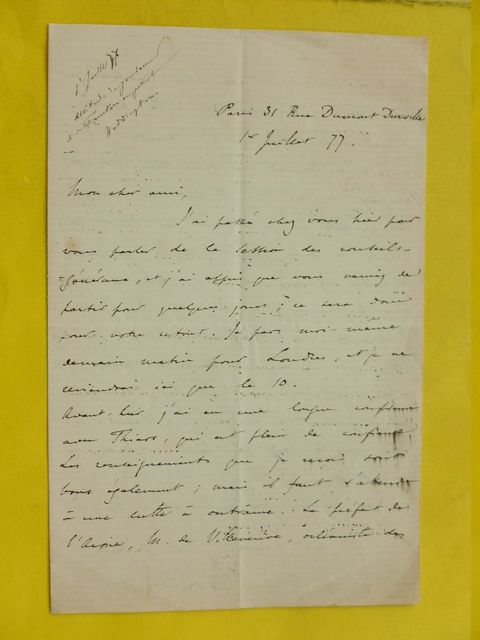 1er Juillet 77
Waddington
Paris 31 Rue Dumont Durville
1er Juillet 77.
Mon cher ami,
J'ai passé chez vous hier pour
vous parler de la session des conseils-
généraux, et j'ai appris que vous veniez de
partir pour quelques jours ; ce sera donc
pour votre retour. Je pars moi même
demain matin pour Londres, et je ne
reviendrai ici que le 10.
Avant-hier j'ai eu une longue
avec Thiers, qui est plein de confiance,
Les renseignements que je reçois sont
bons également ; mais il faut s'attendre
à une lutte à outrance. Le préfet de
l'Aisne, M. de Villeneuve, orléaniste